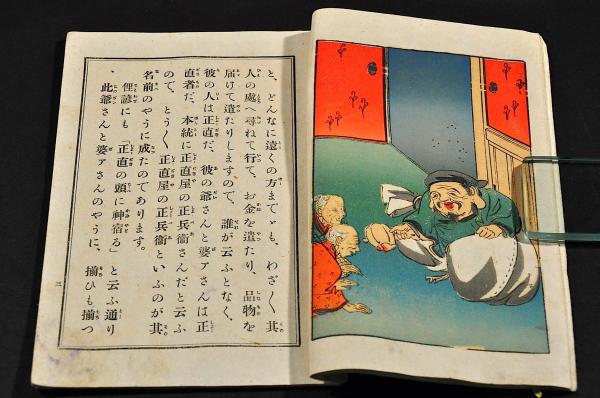 と、どんなに遠くの方までゝも、わざ〳〵其
人の處へ尋ねて行て、お金を遣たり、品物を
届けて遣たりしますので、誰が云ふとなく、
彼の人は正直だ、彼の爺さんと婆ァさんは正
直者だ、本統に正直屋の正兵衞さんだと云ふ
ので、とう〳〵正直屋の正兵衞といふのが其
名前のやうに成たのであります。
俚諺にも「正直の頭に神宿る」と云ふ通り
、此爺さんと婆ァさんのやうに、揃ひも揃つ
三